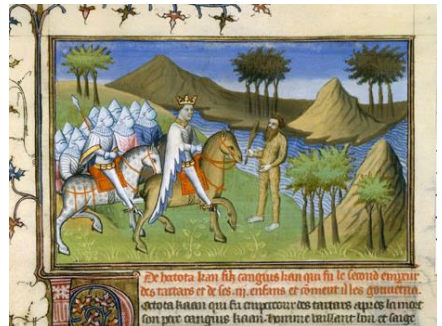 De hatota kan filz canguis kan qui fu le second empereur
des tartars et de ses .iij. enfans et coment il les gouverna.
atota kaan qui fu empereour des tartars apres la mort
son pere canguis kaan. homme vaillant bon et saige